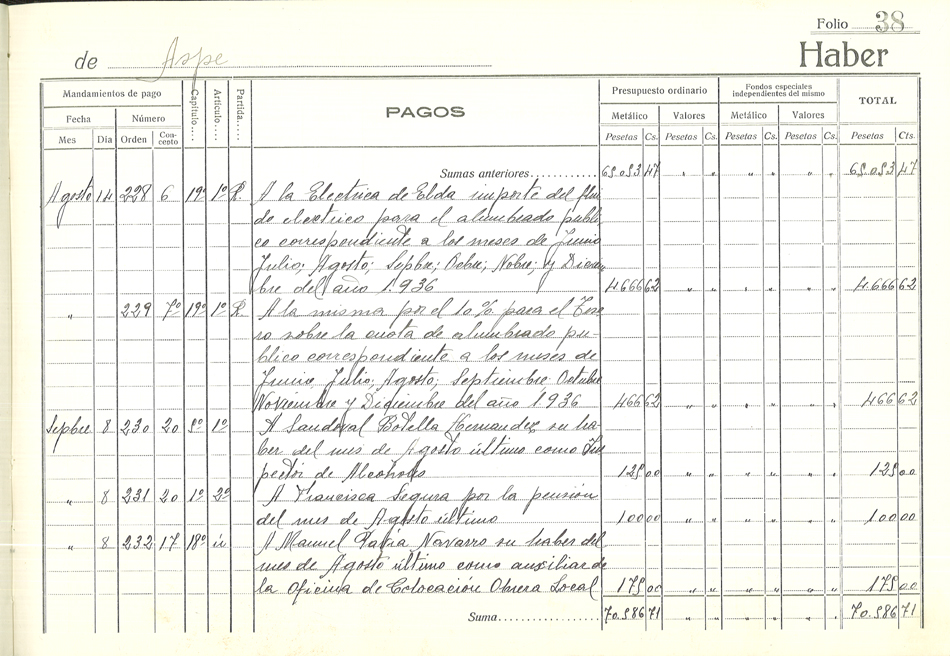 Folio 38
de Aspe
Haber
Mandamientos de pago
Fecha Número
Mes Día Orden Concepto
Capítulo.... Artículo.... Partida.....
PAGOS
Presupuesto ordinario
Metálico Valores
Pesetas Cs. Pesetas Cs.
Fondos especiales independientes del mismo
Metálico Valores
Pesetas Cs. Pesetas Cs.
TOTAL
Pesetas Cts.
Sumas anteriores............ 65.053 47 " " " " " " 65.053 47
Agosto 14 228 6 19º 1º R. A la Electrica de Elda importe del flui
do electrico para el alumbrado públi
co correspondiente a los meses de Junio
Julio; Agosto; Sepbre; Ocbre; Nobre; y Diciem
bre del año 1.936 4.666 62 " " " " " " 4.666 62
" 229 7º 19º 1º R. A la misma por el 10% para el Teso
ro sobre la cuota de alumbrado pú-
blico correspondiente a los meses de
Junio, Julio; Agosto; Septiembre Octubre
Noviembre y Diciembre del año 1936 466 62 " " " " " " 466 62
Sepbre 8 230 20 5º 1º A Sandoval Botella Hernandez su ha-
ber del mes de Agosto último como Ins
pector de Alcoholes 125 00 " " " " " " 125 00
" 8 231 20 1º 2º A Francisca Segura por la pensión
del mes de Agosto último 100 00 " " " " " " 100 00
" 8 232 17 18º A Manuel Navarro su haber del
mes de Agosto último como auxiliar de
la Oficina de Colocación Obrera Local 175 00 " " " " " " 175 00
Suma...................... 70.586 71 " " " " " " 70.586 71